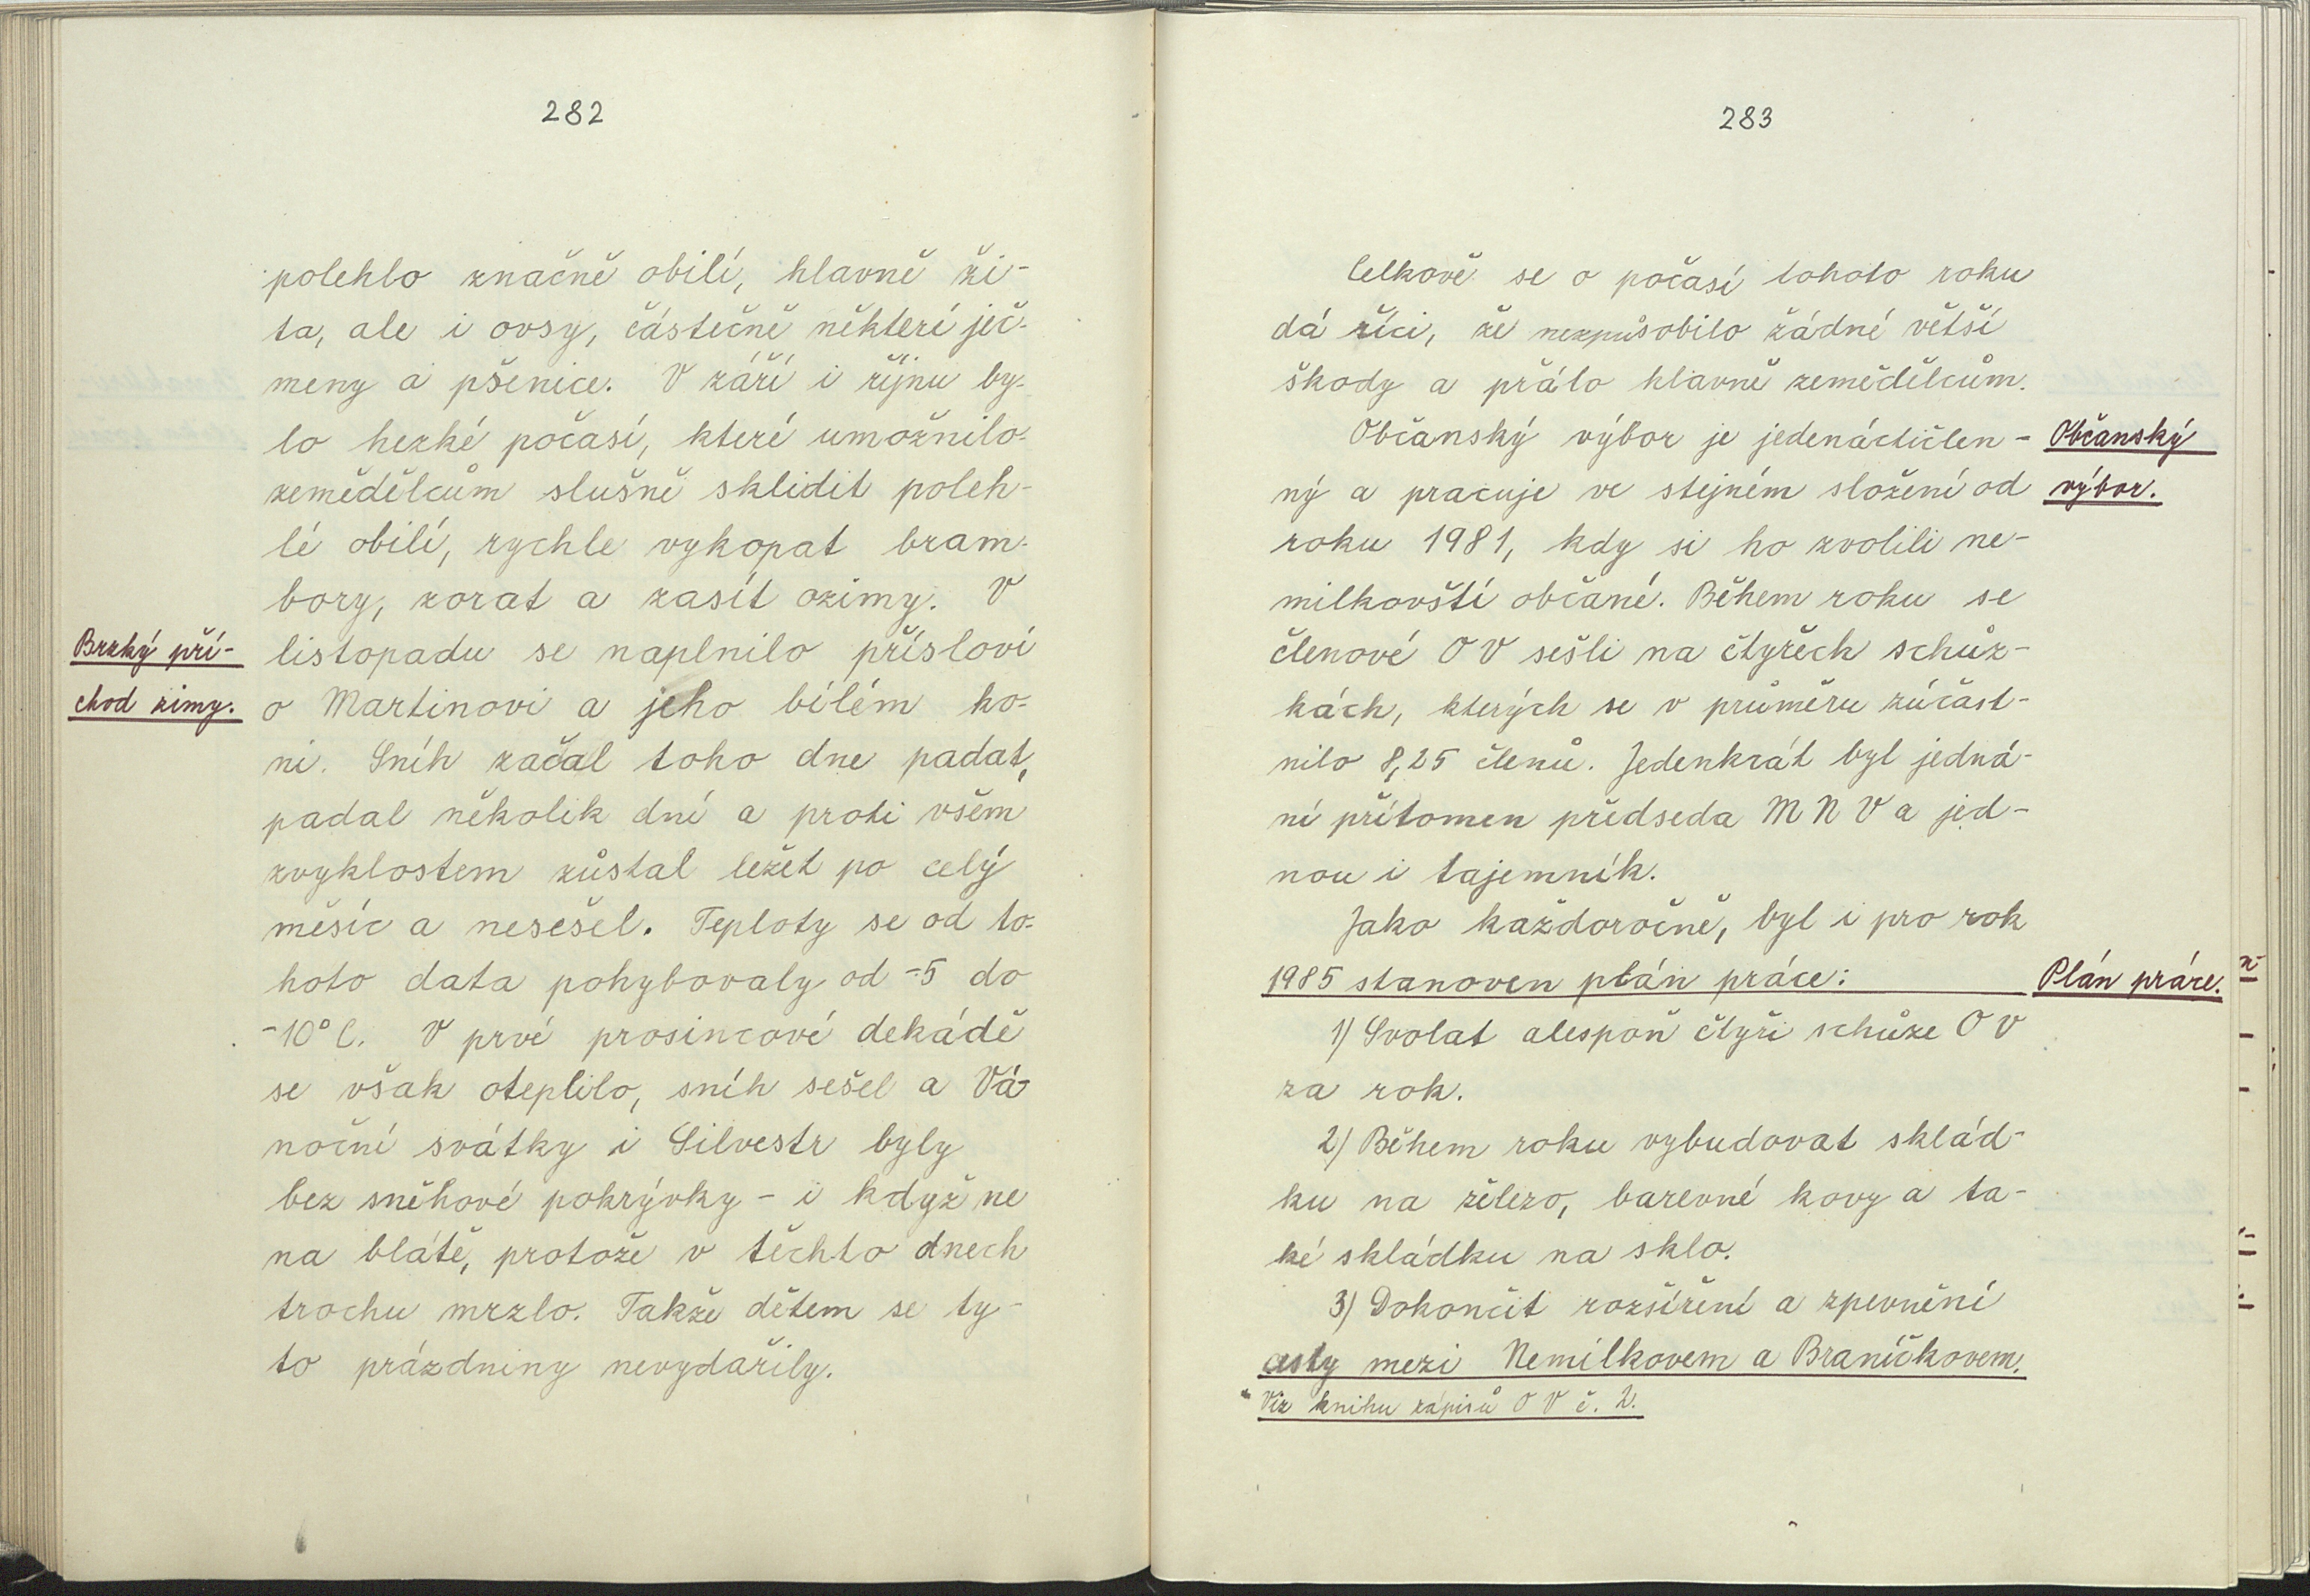 282
polehlo značně obilí, hlavně ži-
ta, ale i ovsy, částečně některé ječ-
meny a pšenice. V září i říjnu by-
lo hezké počasí, které umožnilo
zemědělcům slušně sklidit poleh-
lé obilí, rychle vykopat bram-
bory, zorat a zasít ozimy. V
Brzký pří-
chod zimy.
listopadu se naplnilo přísloví
o Martinovi a jeho bílém ko-
ni. Sníh začal toho dne padat,
padal několik dní a proti všem
zvyklostem zůstal ležet po celý
měsíc a nesešel. Teploty se od to-
hoto data pohybovaly od -5 do
-10°C. V prvé prosincové dekádě
se však oteplilo, sníh sešel a Vá-
noční svátky i Silvestr byly
bez sněhové pokrývky - i když ne
na blátě, protože v těchto dnech
trochu mrzlo. Takže dětem se ty-
to prázdniny nevydařily.
283
Celkově se o počasí tohoto roku
dá říci, že nezpůsobilo žádné větší
škody a přálo hlavně zemědělcům.
Občanský výbor je jedenáctičlen-
ný a pracuje ve stejném složení od
Občanský
výbor.
roku 1981, kdy si ho zvolili ne-
milkovští občané. Během roku se
členové OV sešli na čtyřech schůz-
kách, kterých se v průměru zúčast-
nilo 8,25 členů. Jedenkrát byl jedná-
ní přítomen předseda MNV a jed-
nou i tajemník.
Jako každoročně, byl i pro rok
1985 stanoven plán práce:
Plán práce.
1) Svolat alespoň čtyři schůze OV
za rok.
2) Během roku vybudovat sklád-
ku na železo, barevné kovy a ta-
ké skládku na sklo.
3) Dokončit rozšíření a zpevnění
cesty mezi Nemilkovem a Braníčkovem.
Viz knihu zápisů OV č. 2.